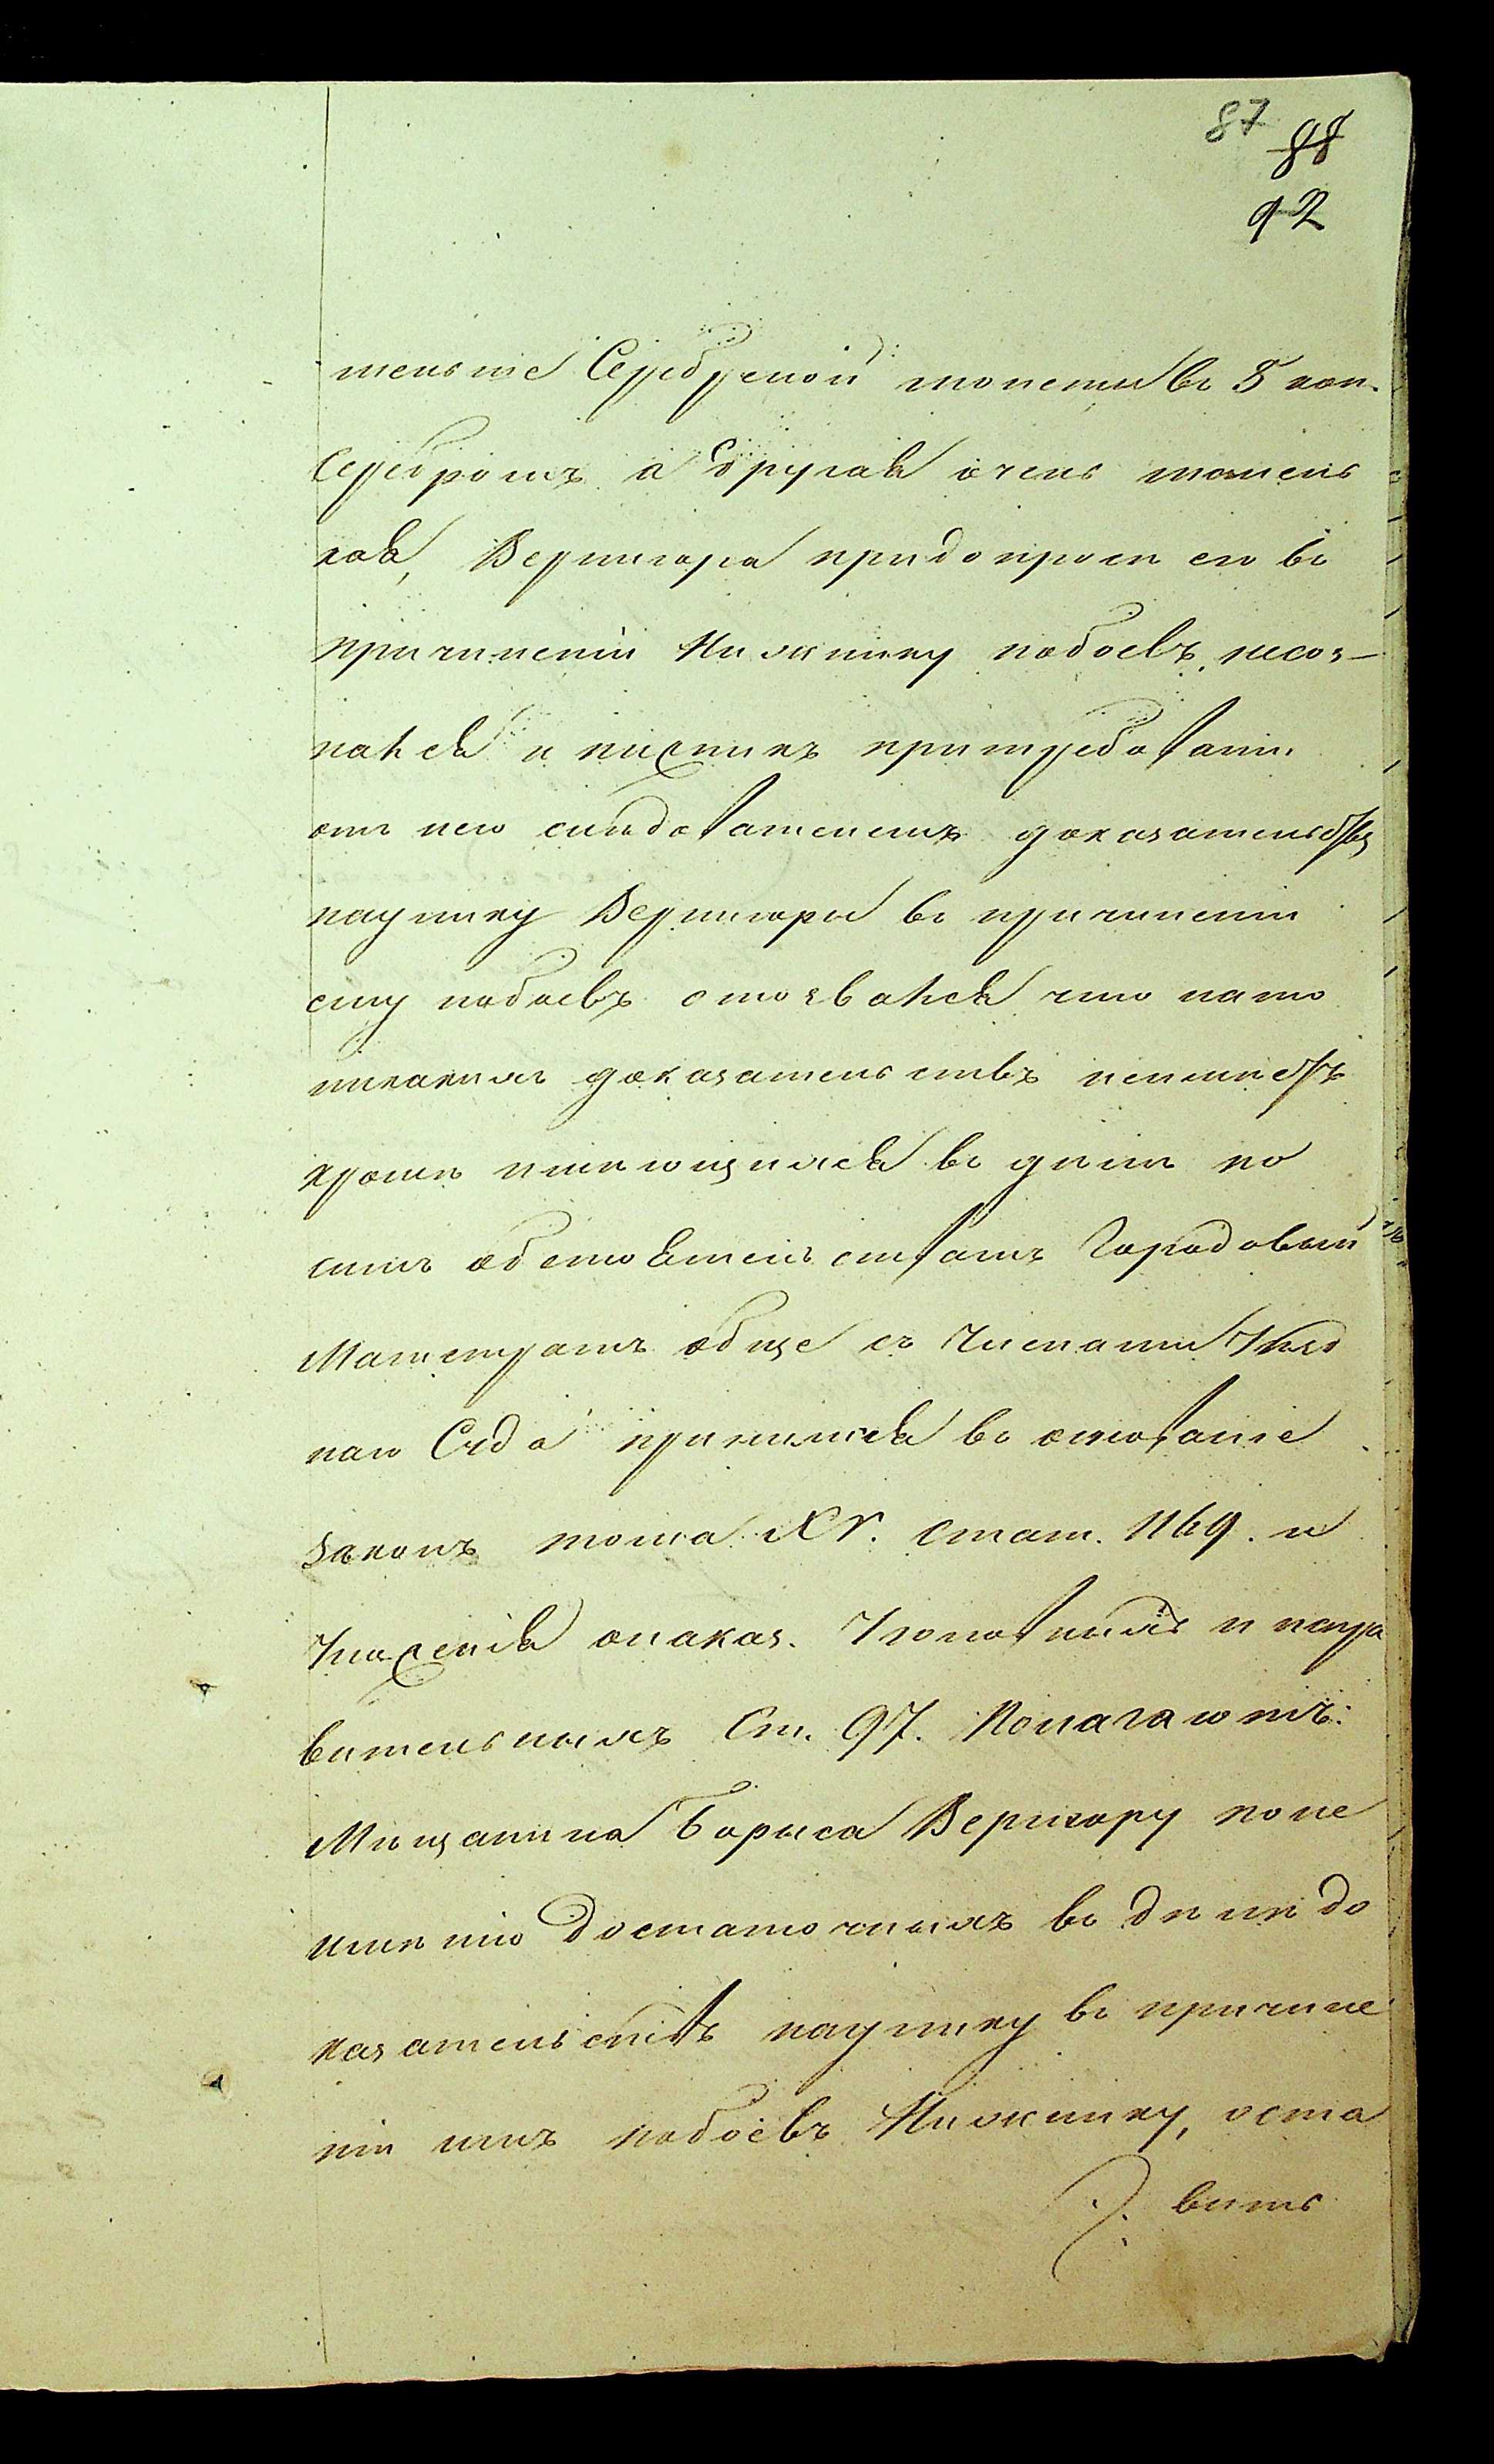 87
88
92
меньше Серебреной монеты въ 5 коп.
Серебромъ а другая очень малень
кая, Веригора придопросе его въ
причиненіи Нижнику побоевъ несоз-
нался и Нижникъ притребованіи
отъ него слѣдователемъ доказательствъ
наулику Веригоры въ причиненіи
ему побоевъ отозвался что нато
никакихъ доказательствъ неимеетъ
кроме имеющихся въ делѣ по
симъ обстоятельствамъ Городовый
Магистратъ обще съ Членами Уезд
наго Суда принимая въ основаніе
законъ тома XV. стат. 1169. и
Уложенія онаказ. Уголовныхъ и испра
вительныхъ Ст. 97. Полагаютъ:
Мѣщанина Бориса Веригору поне
имѣнію достаточныхъ въ дѣлѣ до
казательствъ наулику въ причине
ніи имъ побоевъ Нижнику, оста
вить